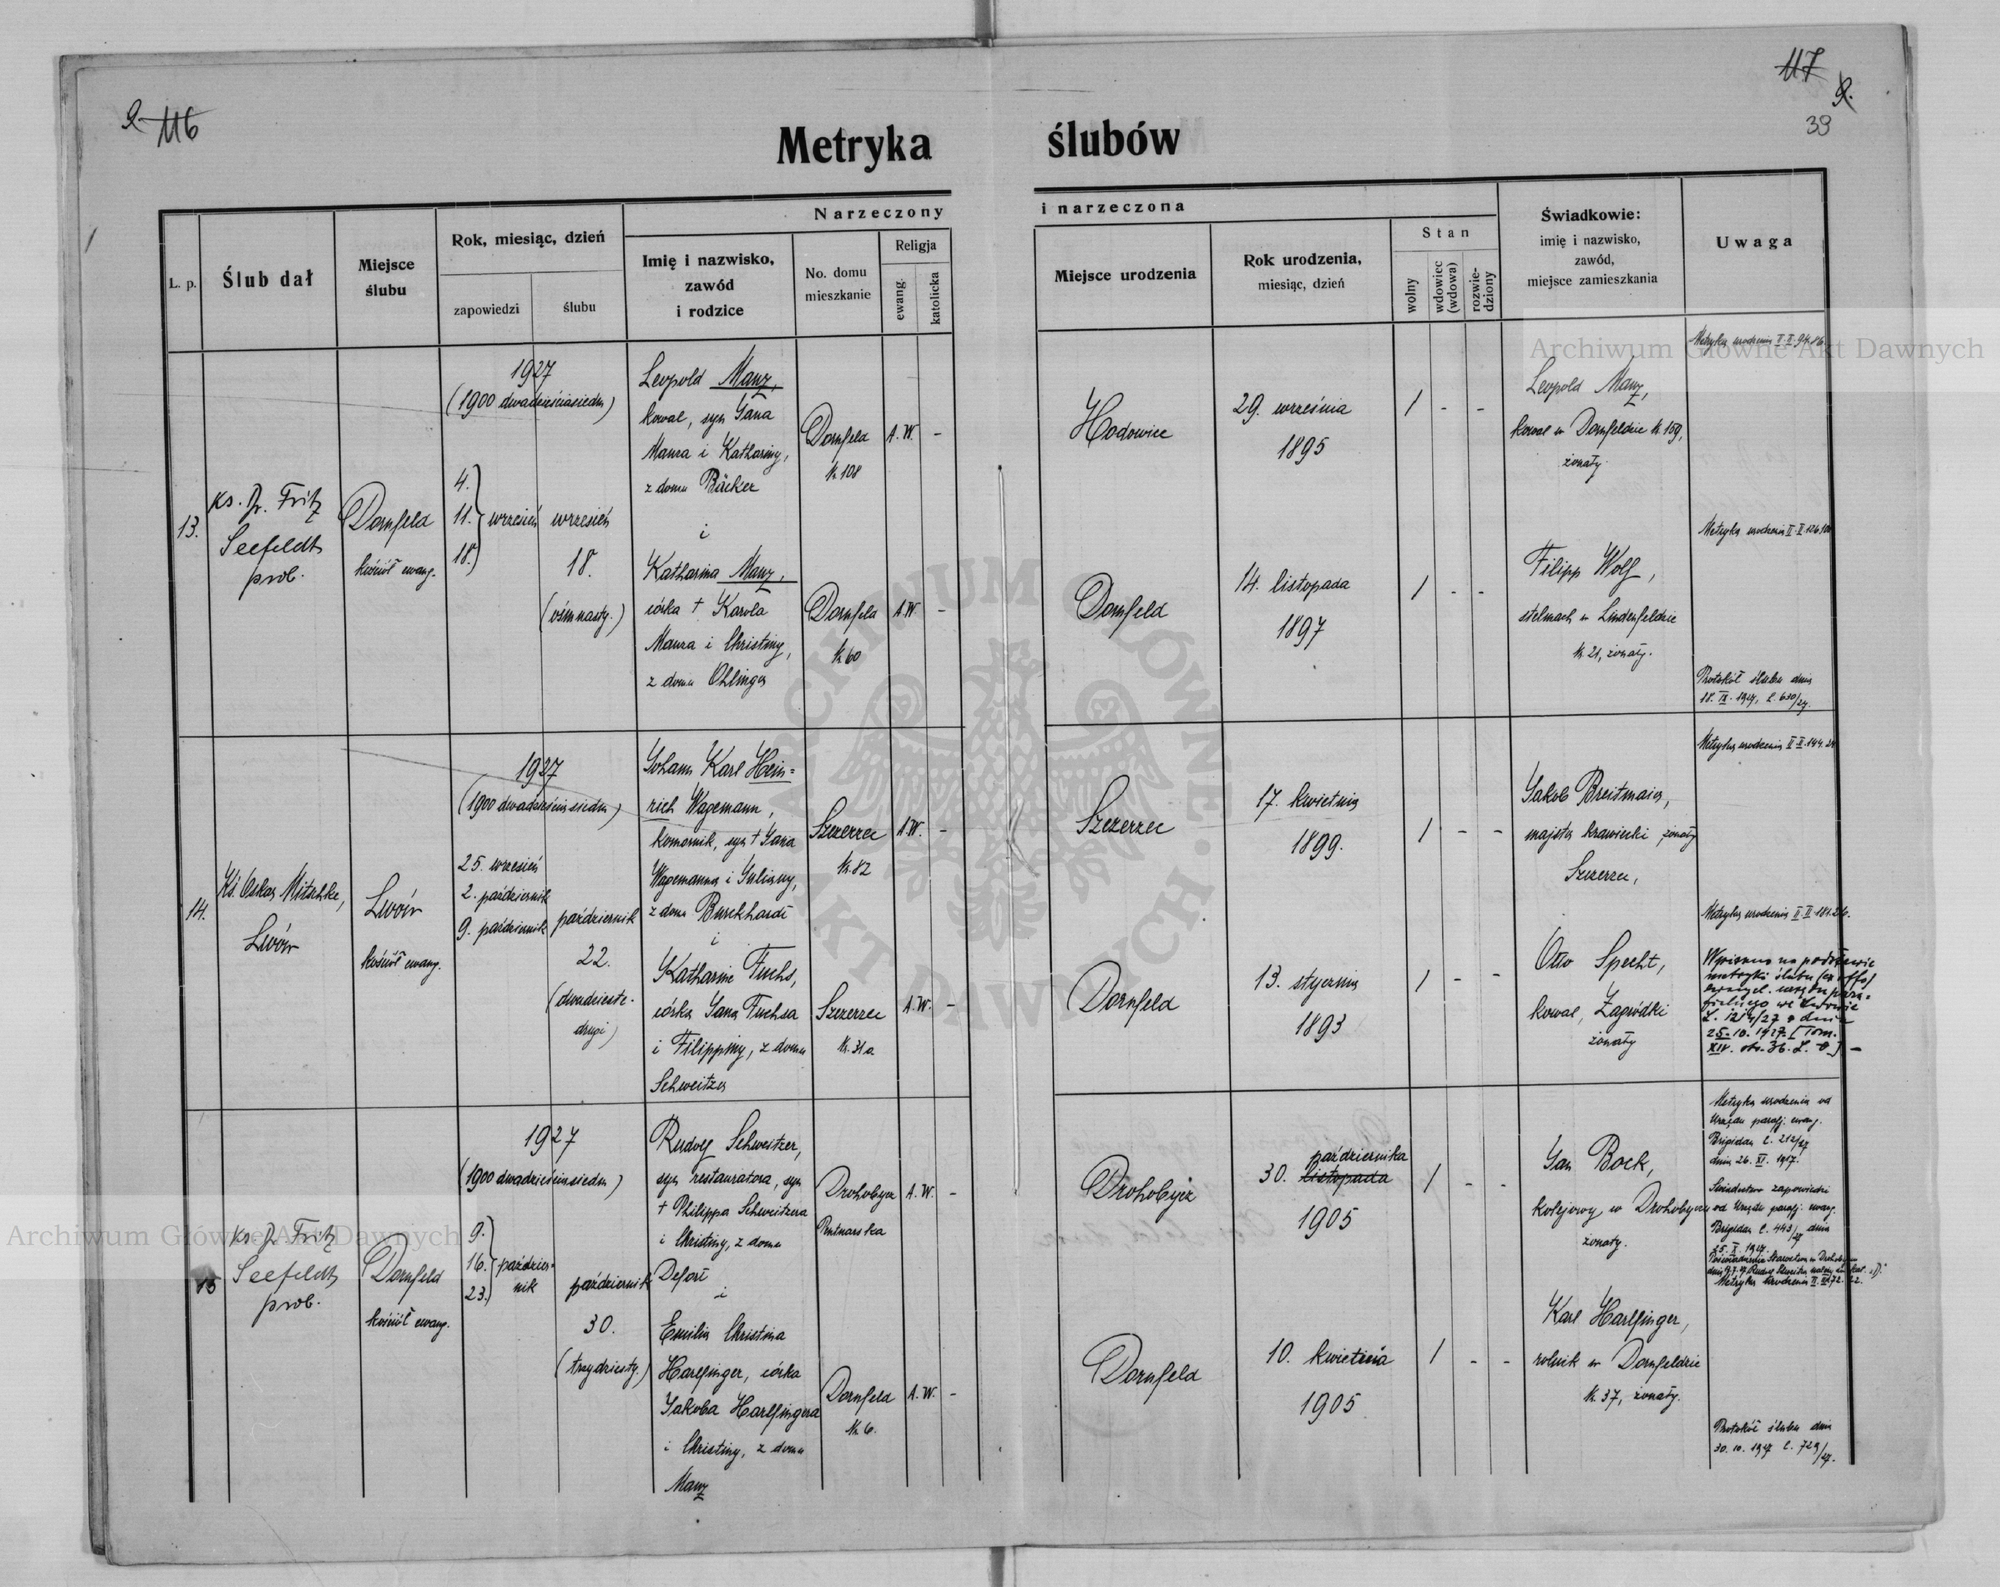 2. 116
117
2.
39
Metryka ślubów
Narzeczony i narzeczona
L. p.
Ślub dał
Miejsce
ślubu
Rok, miesiąc, dzień
zapowiedzi
ślubu
Imię i nazwisko,
zawód
i rodzice
No. domu
mieszkanie
Religja
ewang.
katolicka
Miejsce urodzenia
Rok urodzenia,
miesiąc, dzień
Stan
wolny
wdowiec
(wdowa)
rozwie-
dziony
Świadkowie:
imię i nazwisko,
zawód,
miejsce zamieszkania
Uwaga
13.
ks. Dr. Fritz
Seefeldt
prob.
Dornfeld
kościół ewang.
1927
(1900 dwadzieściasiedm)
4.
11. wrzesień
18.
wrzesień
18.
(ośmnasty.)
Leopold Manz,
kowal, syn Jana
Manza i Kathariny,
z domu Bäcker
i
Katharina Manz,
córka + Karola
Manza i Christiny,
z domu Ohlinger
Dornfeld
N. 108
A.W. -
Dornfeld
N. 60
A.W. -
Hodowice
29. września
1895
/ - -
Dornfeld
14. listopada
1897
/ - -
Leopold Manz,
kowal w Dornfeldzie N. 109,
żonaty.
Filipp Wolf,
stelmach w Lindenfeldzie
N. 21, żonaty.
Metryka urodzenia
Metryka urodzenia
Protokół ślubu dnia
18. IX. 1927, L. 630/27.
14.
Ks. Oskar Mitschke,
Lwów
Lwów
kościół ewang.
1927
(1900 dwadzieściasiedm)
25. wrzesień
2. październik
9. październik
październik
22.
(dwudzieste-
drugi)
Johann Karl Hein=
rich Wagemann,
komornik, syn + Jana
Wagemanna i Juliany,
z domu Burckhardt
i
Katharine Fuchs,
córka Jana Fuchsa
i Filippiny, z domu
Schweitzer
Szczerzec
N. 82
A.W. -
Szczerzec
N. 31a.
A.W. -
Szczerzec
17. kwietnia
1899.
/ - -
Dornfeld
13. stycznia
1893
/ - -
Jakob Breitmaier,
majster krawiecki żonaty
Szczerzec,
Otto Specht,
kowal, Zagródki
żonaty
Metryka urodzenia
Metryka urodzenia
Wpisano na podstawie
metryki ślubu (ex offo)
ewangel. urzędu para=
fialnego we Lwowie
z dnia
25. 10. 1927. [Tom.
XIV. str. 36. L.
15
ks. Dr. Fritz
Seefeldt
prob.
Dornfeld
kościół ewang.
1927
(1900 dwadzieściasiedm)
9.
16. paździer-
23. nik
październik
30.
(trzydziesty.)
Rudolf Schweitzer,
syn restauratora, syn
+ Philippa Schweitzera
i Christiny, z domu
Defort
i
Emilia Christina
Harlfinger, córka
Jakoba Harlfingera
i Christiny, z domu
Manz
Drohobycz
A.W. -
Dornfeld
N. 6.
A.W. -
Drohobycz
października
30. listopada
1905
/ - -
Dornfeld
10. kwietnia
1905
/ - -
Jan Bock,
kolejowy w Drohobyczu
żonaty.
Karl Harlfinger,
rolnik w Dornfeldzie
N. 37, żonaty.
Metryka urodzenia od
Urzędu parafj. ewang.
Brigidau L. 212/27
Świadectwo zapowiedzi
od Urzędu parafj. ewang.
Brigidau L. 443/27 dnia
25. X. 1927.
Metryka urodzenia
Protokół ślubu dnia
30. 10. 1927 L. 729/27.
Archiwum Główne Akt Dawnych
Archiwum Główne Akt Dawnych
ARCHIWUM GŁÓWNE AKT DAWNYCH